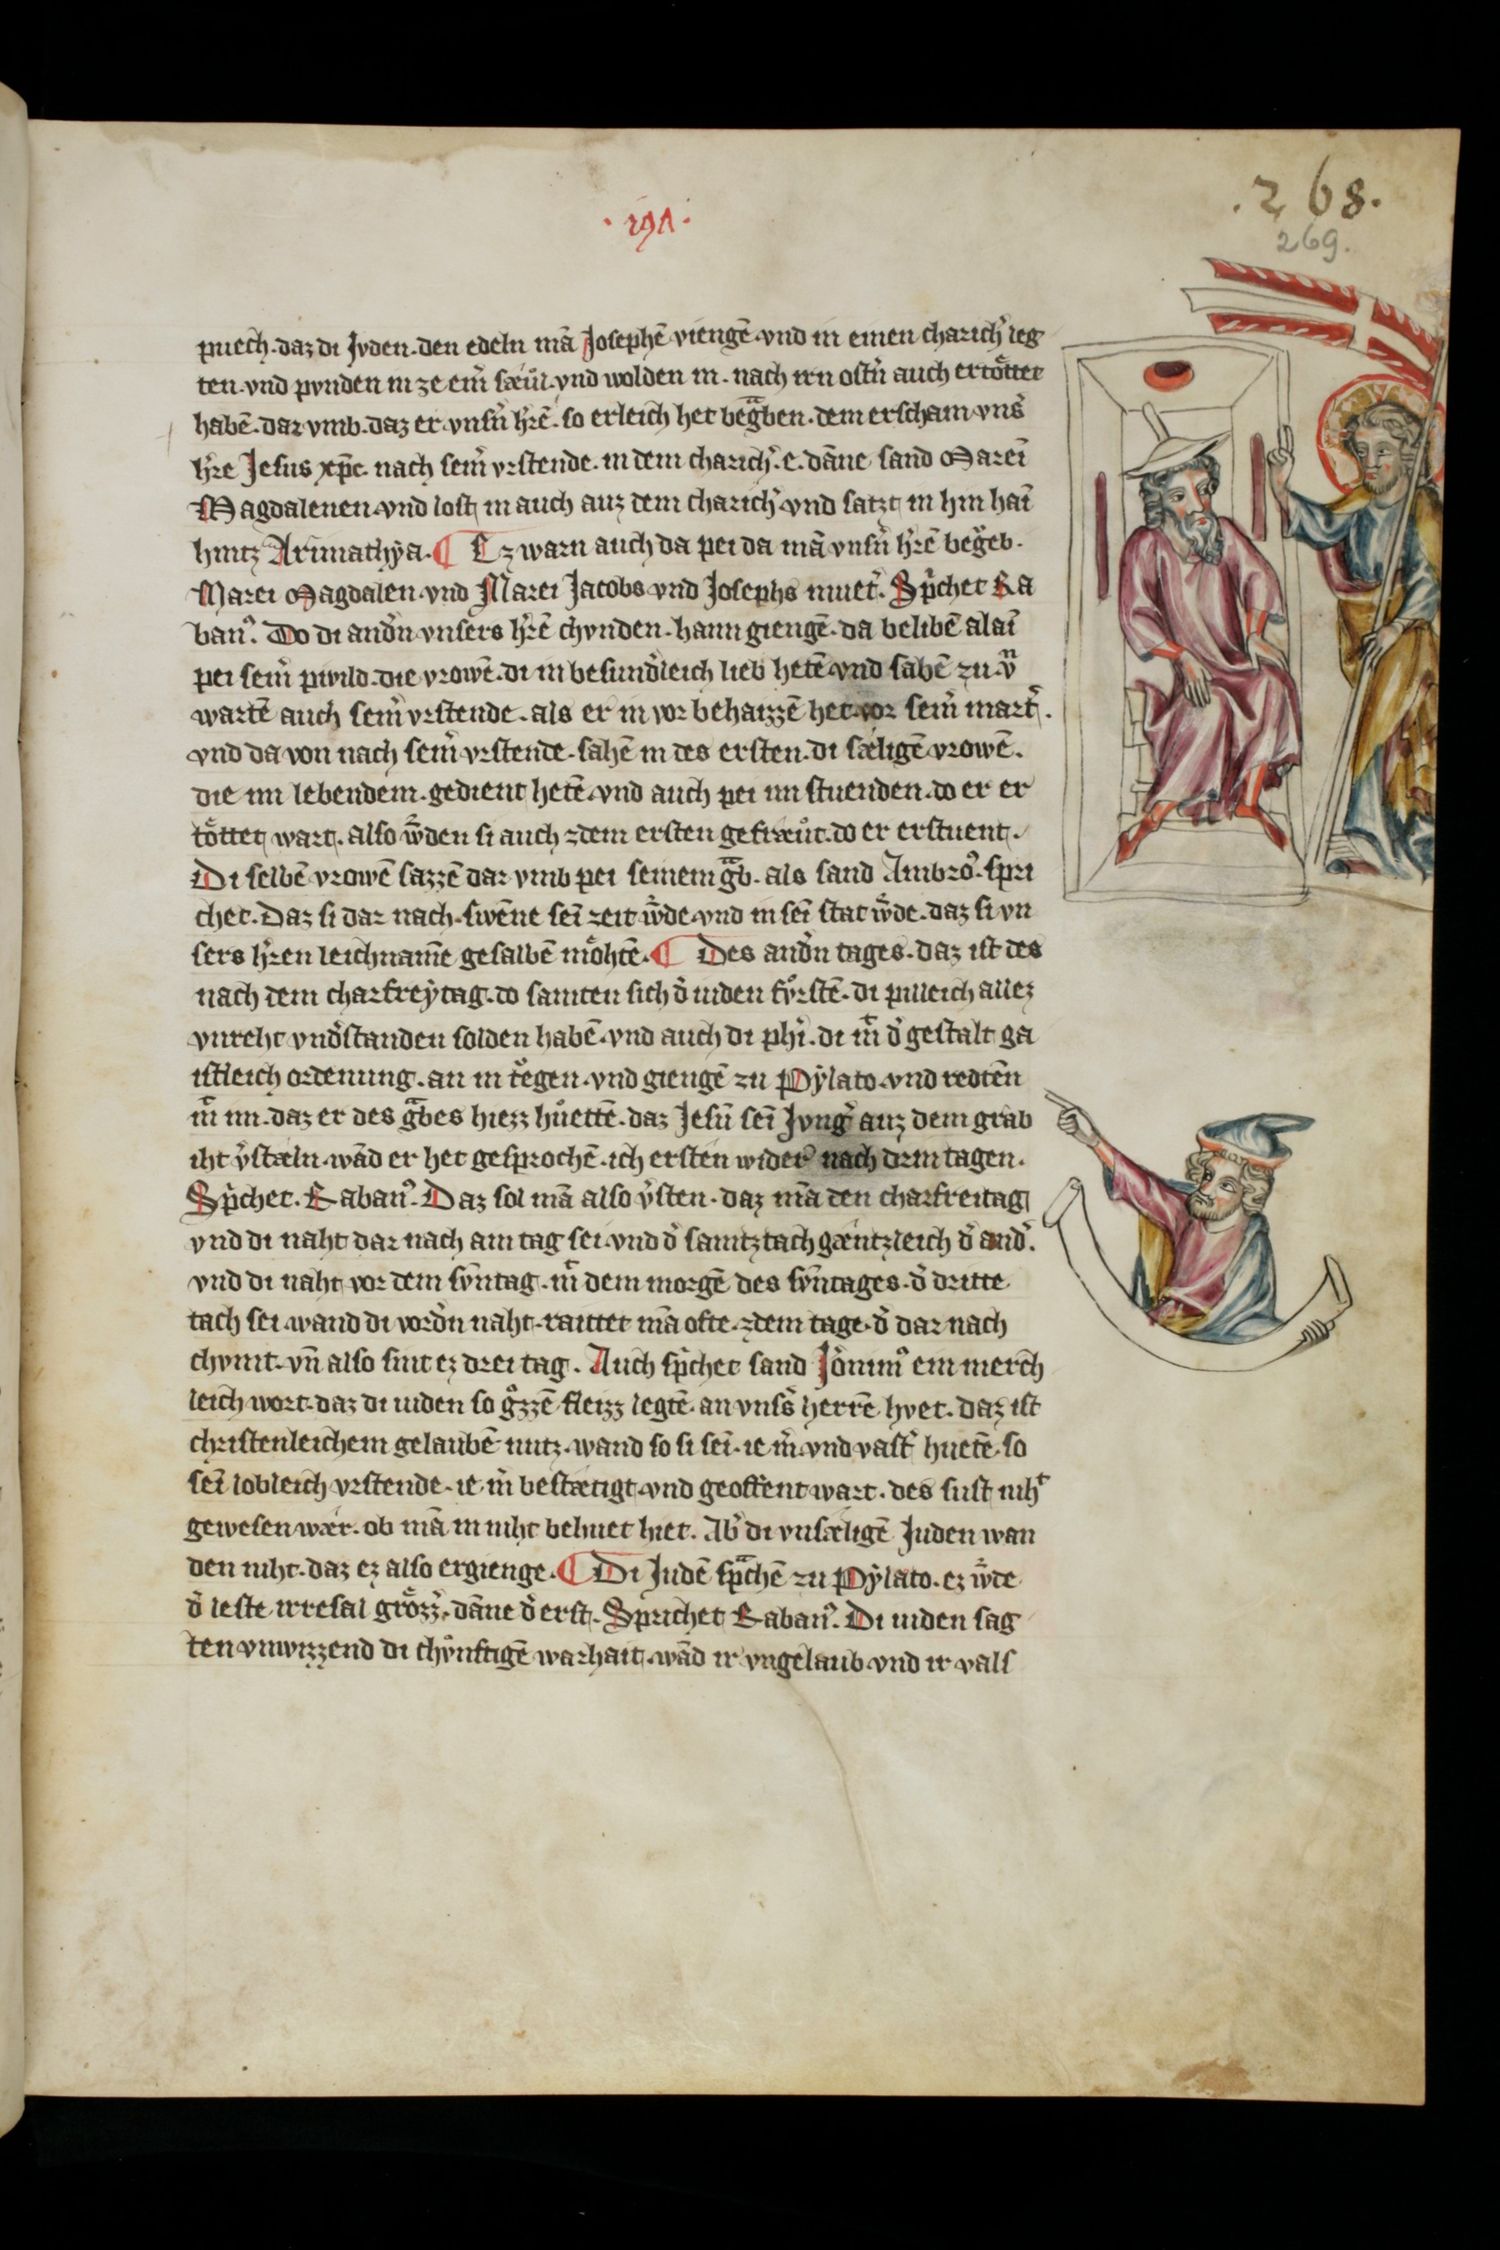 .268.
269.
· 191 ·
puech. daz di Jvden. den edeln mā Josephē viengē. vnd in einen charich͛ leg
ten. vnd pvnden in ze eim̄ sæul. vnd wolden in. nach irn ostn̄ auch ertöttet
habē. dar vmb. daz er vnsn̄ h͛rē. so erleich het begͣben. dem erschain vns͛
h͛re Jesus xp̄c. nach seim̄ vrstende. in dem charich͛. e. dāne sand Mareī
Magdalenen. vnd lost in auch auz dem charich͛. vnd satzt in hin haī
hintz Arimathẏa. ¶ Ez warn auch da pei da mā vnsn̄ h͛rē begͤb.
Marei Magdalen. vnd Marei Jacobs vnd Josephs muet͛. Sp͛chet Ra
ban9. Do di and͛n vnsers h͛rē chvnden. haim giengē. da belibē alaī
pei seim̄ piwild. die vrowē. di in besund͛leich lieb hetē. vnd sahē zu. vn̄
wartē auch seim̄ vrstende. als er in vor behaizzē het. vor seim̄ mart͛.
vnd da von nach seim̄ vrstende. sahē in des ersten. di sæligē vrowē.
die im lebendem. gedient hetē. vnd auch pei im stuenden. do er er
töttet wart. also w͛den si auch zdem ersten gefræut. do er erstuent.
Di selbē vrowē sazzē dar vmb pei seinem gͣb. als sand Ambro9. spri
chet. Daz si dar nach. swēne seī zeit w͛de. vnd in seī stat w͛de. daz si vn
sers h͛ren leichnamē gesalbē möhtē. ¶ Des and͛n tages. daz ist des
nach dem charfreẏtag. do samten sich d͛ iuden fvͤrstē. di pilleich allez
vnreht vnd͛standen solden habē. vnd auch di phī. di mit d͛ gestalt ga
istleich ordenung. an in tͤgen. vnd giengē zu Pẏlato. vnd redtēn
mit im. daz er des gͣbes hiezz huͤettē. daz Jesū seī Jvng͛ auz dem grab
iht v͛stæln. wād er het gesprochē. ich ersten wider nach drin tagen.
Sp͛chet. Raban9. Daz sol mā also v͛sten. daz mā den charfreitag
vnd di naht dar nach ain tag sei. vnd d͛ samtztach gæntzleich d͛ and͛.
vnd di naht vor dem svͤntag. mit dem morgē des svͤntages. d͛ dritte
tach sei. wand di vord͛n naht. raittet mā ofte. zdem tage. d͛ dar nach
chvmt. vn̄ also sint ez drei tag. Auch sp͛chet sand J͛onim9 ein merch
leich wort. daz di iuden so gͦzzē fleizz legtē. an vnss͛ herrē hvet. daz ist
christenleichem gelaubē nutz. wand so si seī. ie m͛. vnd vast͛ huetē. so
seī lobleich vrstende. ie m͛ bestætigt. vnd geoffent wart. des sust nih͛t
gewesen wær. ob mā in niht behuet hiet. Ab͛ di vnsæligē Juden wan
den niht. daz ez also ergienge. ¶ Di Judē spͣchē zu Pẏlato. ez w͛de
d͛ leste irresal grözz͛. dāne d͛ erst. Sprichet Raban9. Di iuden sag
ten vnwizzend di chvͤnftigē warhait. wād ir vngelaub vnd ir vals